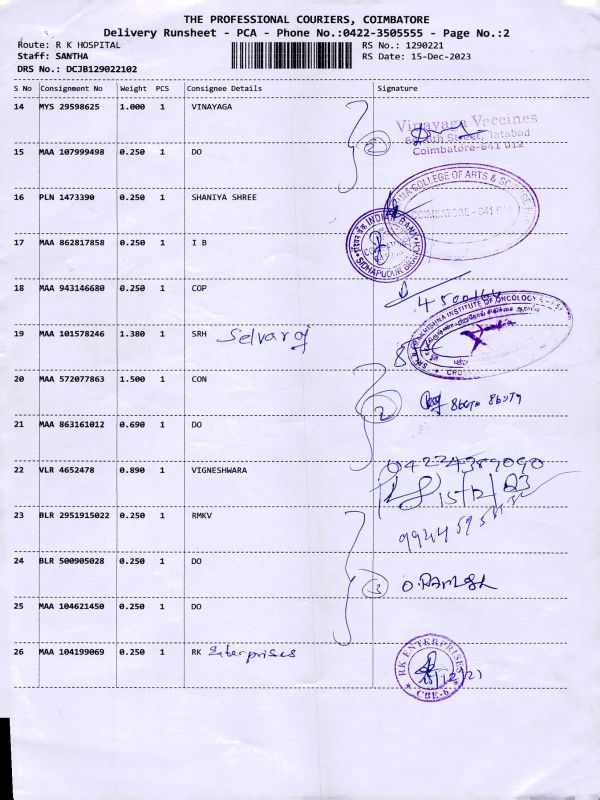 THE PROFESSIONAL COURIERS, COIMBATORE
Delivery Runsheet - PCA - Phone No.:0422-3505555 - Page No.:2
Route: R K HOSPITAL
RS No.: 1290221
Staff: SANTHA
RS Date: 15-Dec-2023
DRS No.: DCJB129022102
S No Consignment No Weight PCS Consignee Details Signature
14 MYS 29598625 1.000 1 VINAYAGA
Vinayaga Vaccines
Street, Tatabad
Coimbatore-641 012
15 MAA 107999498 0.250 1 DO
2
16 PLN 1473390 0.250 1 SHANIYA SHREE
COLLEGE OF ARTS &
COIMBATORE - 641
17 MAA 862817858 0.250 1 I B
INDIAN BANK
SIDHAPUDUR BRANCH
18 MAA 943146680 0.250 1 COP
19 MAA 101578246 1.380 1 SRH Selvaraj
RAMAKRISHNA INSTITUTE OF ONCOLOGY
20 MAA 572077863 1.500 1 CON
2
21 MAA 863161012 0.690 1 DO
22 VLR 4652478 0.890 1 VIGNESHWARA
04224389090
15/12/23
23 BLR 2951915022 0.250 1 RMKV
24 BLR 500905028 0.250 1 DO
3 O.RAMESH
25 MAA 104621450 0.250 1 DO
26 MAA 104199069 0.250 1 RK Enterprises
RK ENTERPRISES
CBE-6